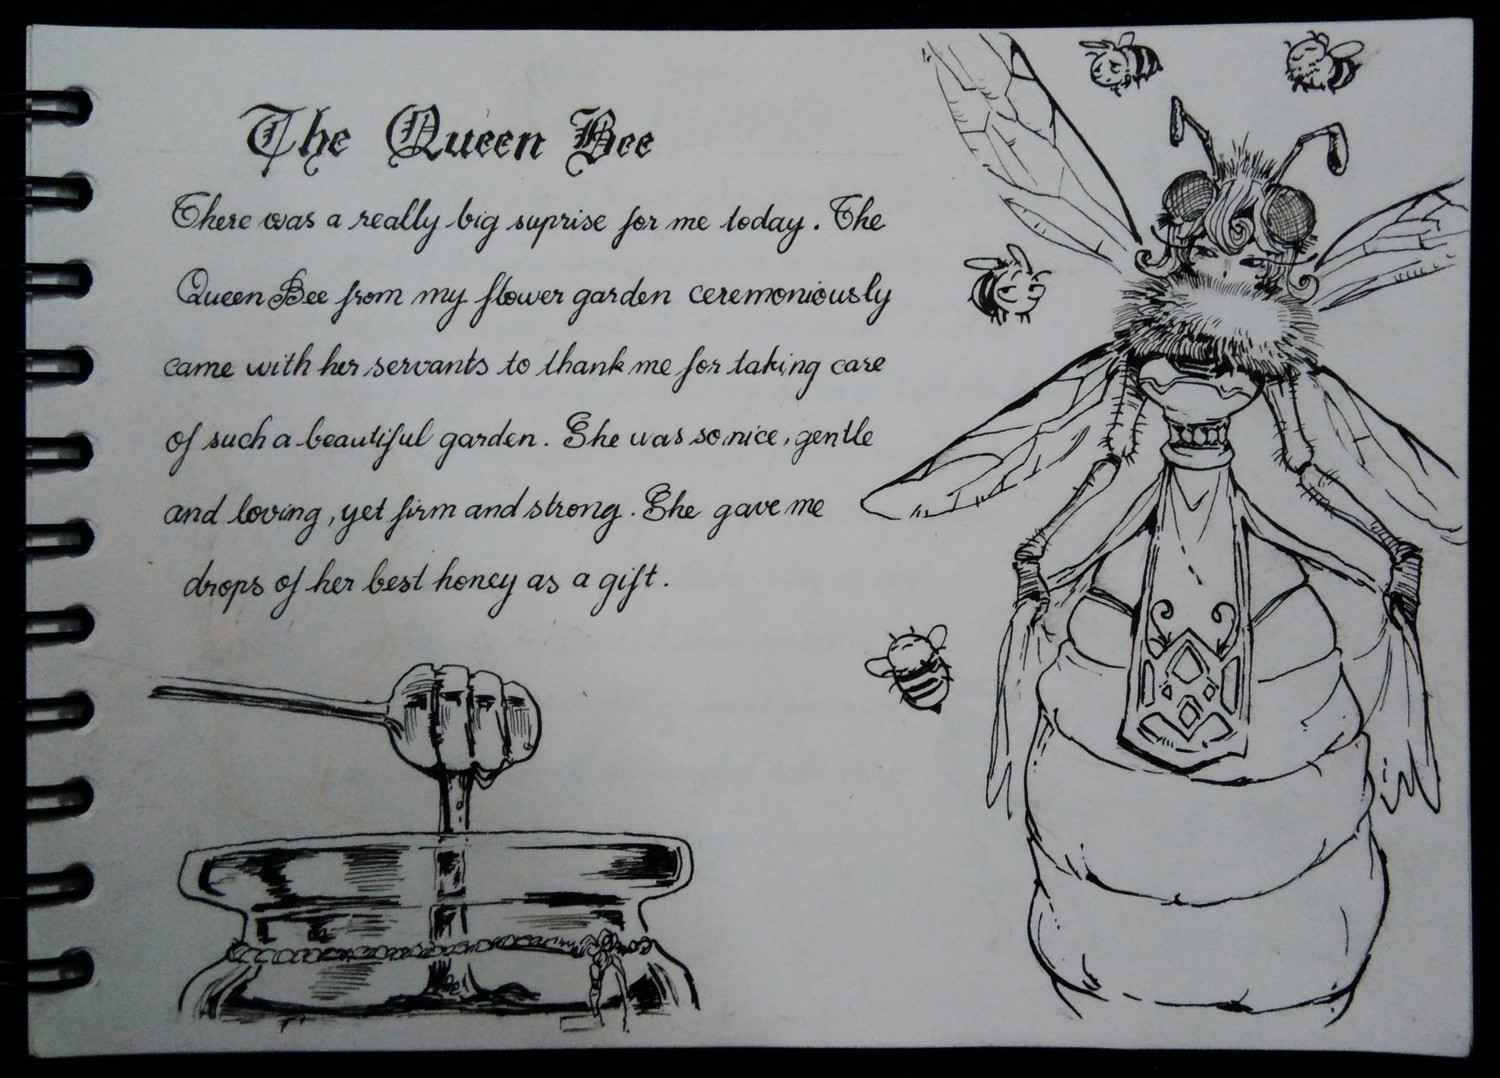 The Queen Bee
There was a really big suprise for me today. The
Queen Bee from my flower garden ceremoniously
came with her servants to thank me for taking care
of such a beautiful garden. She was so nice, gentle
and loving, yet firm and strong. She gave me
drops of her best honey as a gift.